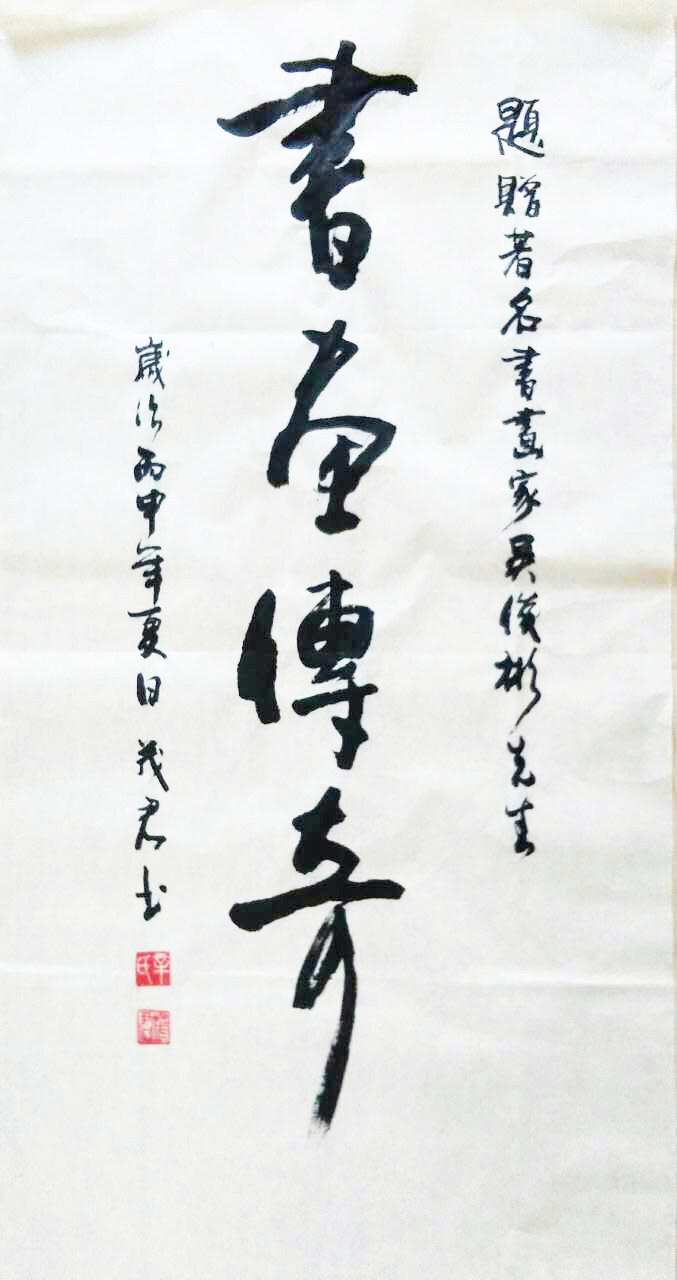 題贈著名書畫家吳俊彬先生
書畫傳奇
歲次丙申年夏日 茂君书